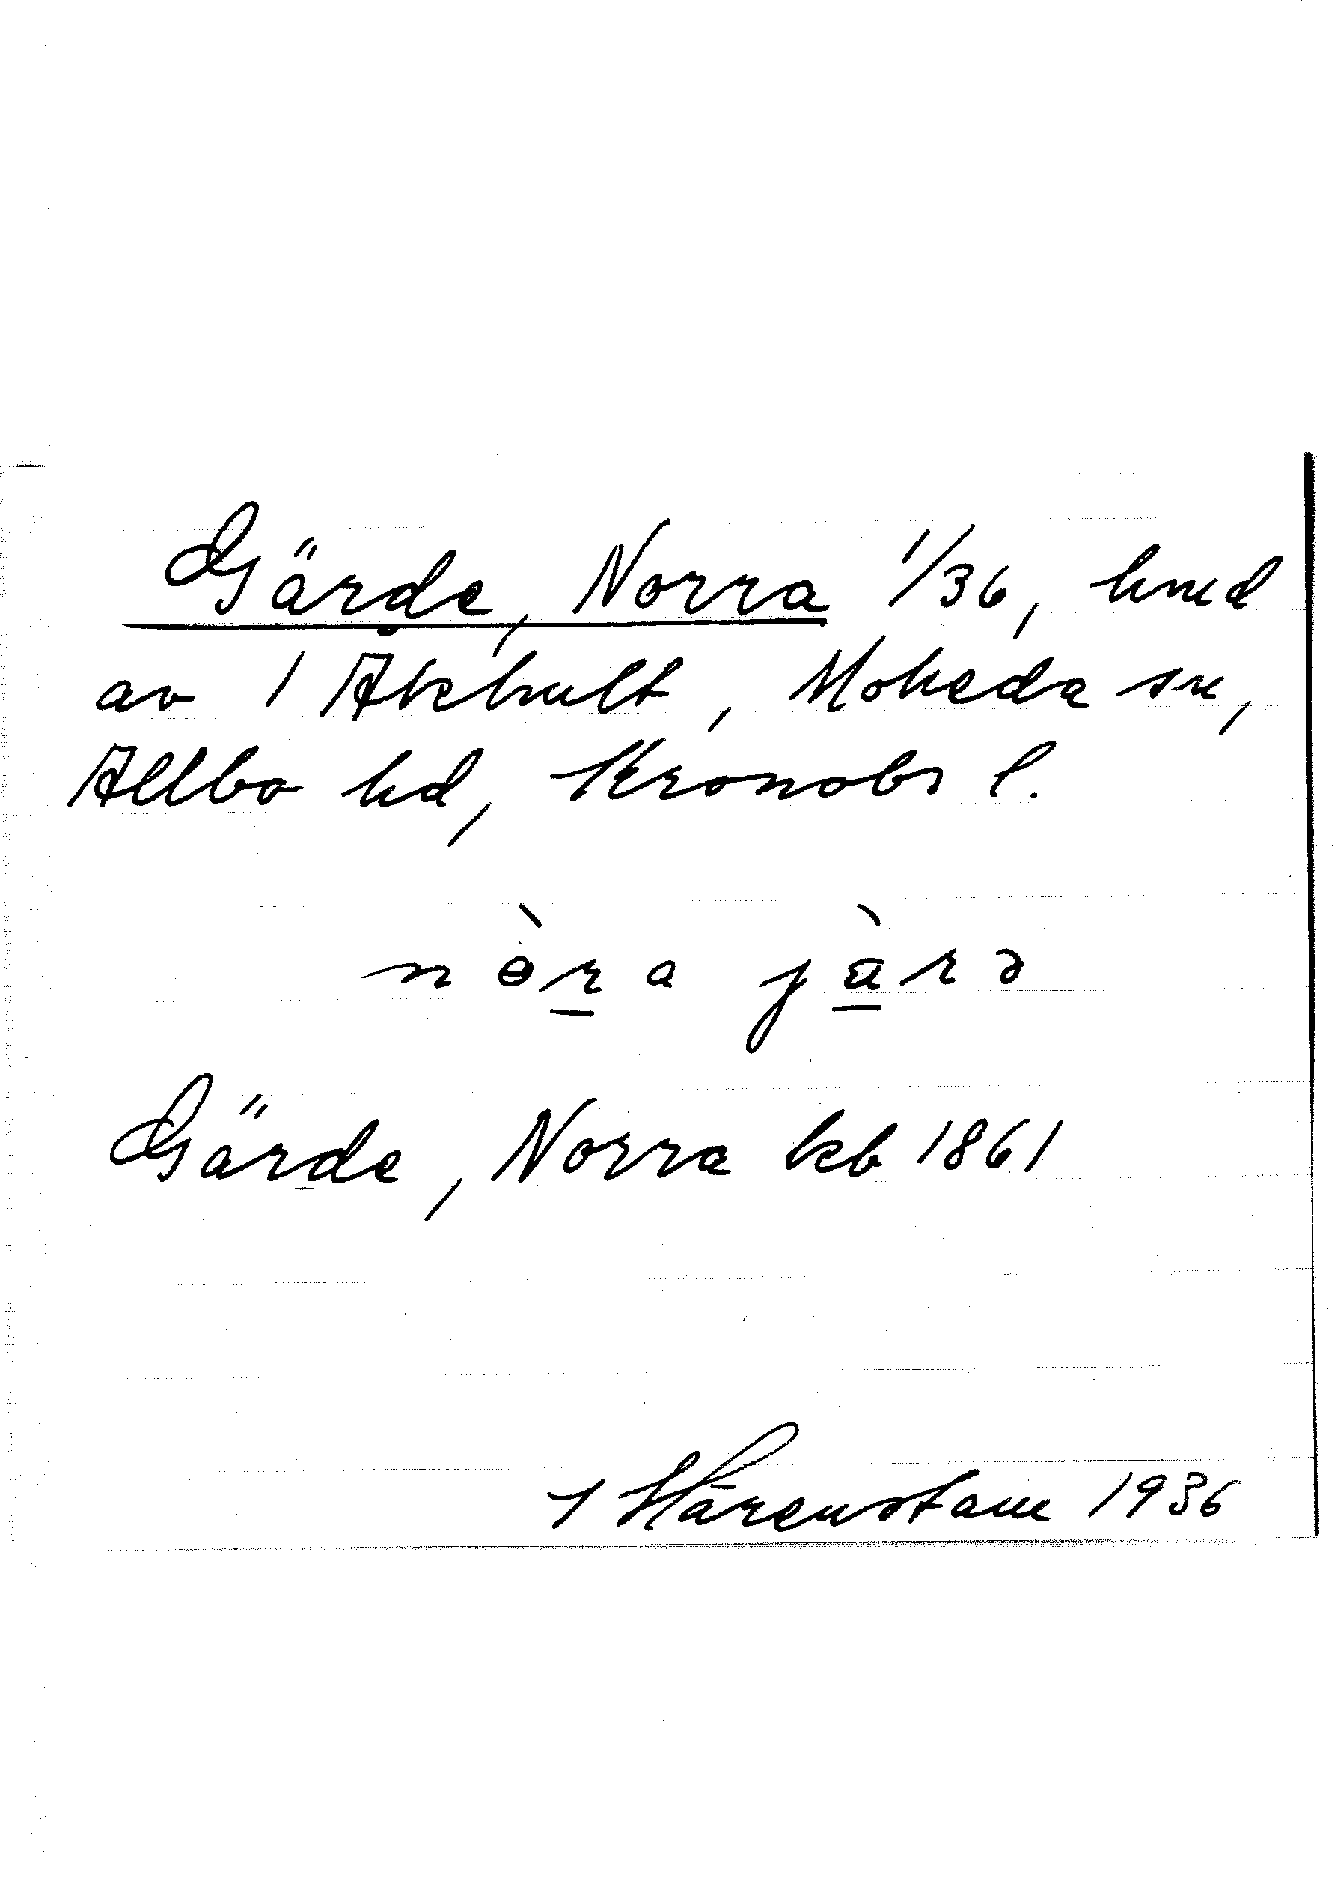 Gärde, Norra 1/36, hmd
av 1 Åkhult, Moheda sn,
Allbo hd, Kronobs l.
nɵ̀ra jàrə
Gärde, Norra kb 1861
Hårenstam 1936